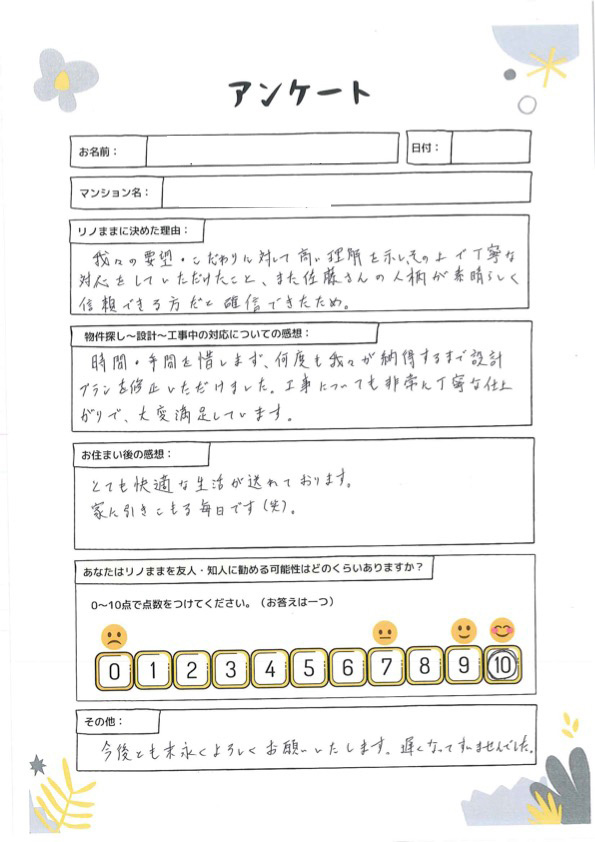 アンケート
お名前：
日付：
マンション名：
リノままに決めた理由：
我々の要望・こだわりに対して高い理解を示し、その上で丁寧な
対応をしていただけたこと、また佐藤さんの人柄が素晴らしく
信頼できる方だと確信できたため。
物件探し～設計～工事中の対応についての感想：
時間・手間を惜しまず、何度も我々が納得するまで設計
プランを修正いただけました。工事についても非常に丁寧な仕上
がりで、大変満足しています。
お住まい後の感想：
とても快適な生活が送れております。
家に引きこもる毎日です(笑)。
あなたはリノままを友人・知人に勧める可能性はどのくらいありますか？
0～10点で点数をつけてください。（お答えは一つ）
0 1 2 3 4 5 6 7 8 9 10
その他：
今後とも末永くよろしくお願いいたします。遅くなってすいませんでした。